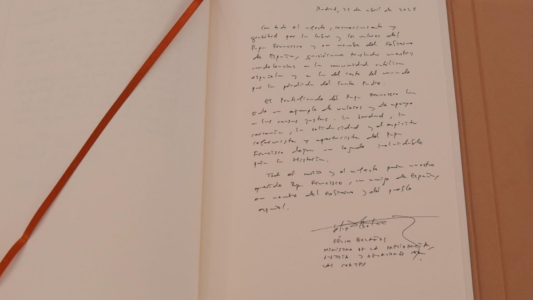 Madrid, 22 de abril de 2025
Con todo el afecto, conocimiento y
gratitud por la labor y los valores del
Papa Francisco y en nombre del Gobierno
de España, queremos trasladar nuestras
condolencias a la comunidad católica
española y a la del resto del mundo
por la pérdida del Santo Padre.
El Pontificado del Papa Francisco ha
sido un ejemplo de valores y de apoyo
a las causas justas. La bondad, la
cercanía, la solidaridad y el espíritu
reformista y aperturista del Papa
Francisco dejan un legado ineludible
para la Historia.
Todo el cariño y el afecto para nuestro
querido Papa Francisco, un amigo de España,
en nombre del Gobierno y del pueblo
español.
FÉLIX BOLAÑOS
MINISTRO DE LA PRESIDENCIA,
JUSTICIA Y RELACIONES CON
LAS CORTES